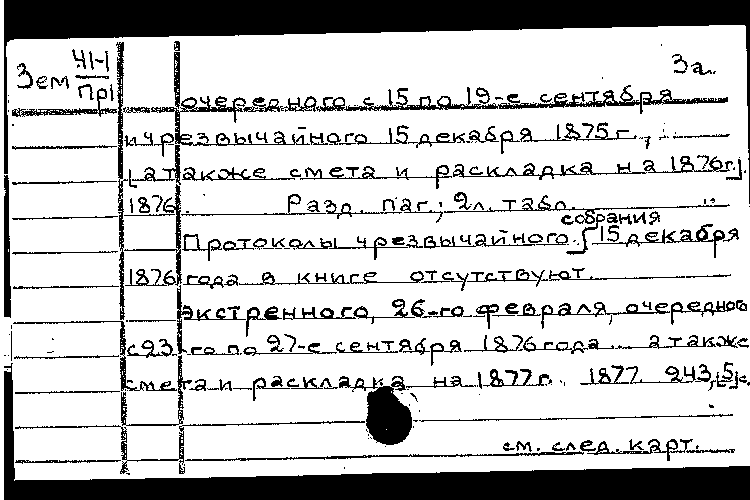 Зем 41-1 3а.
Пр1
очередного с 15 по 19-е сентября
и чрезвычайного 15 декабря 1875 г.,
[а также смета и раскладка на 1876 г.].
1876. Разд. паг.; 2 л. табл.
собрания
Протоколы чрезвычайного 15 декабря
1876 года в книге отсутствуют.
экстренного, 26-го февраля, очередного
с 23-го по 27-е сентября 1876 года... а также
смета и раскладка на 1877 г. 1877. 243, [5] с.
см. след. карт.